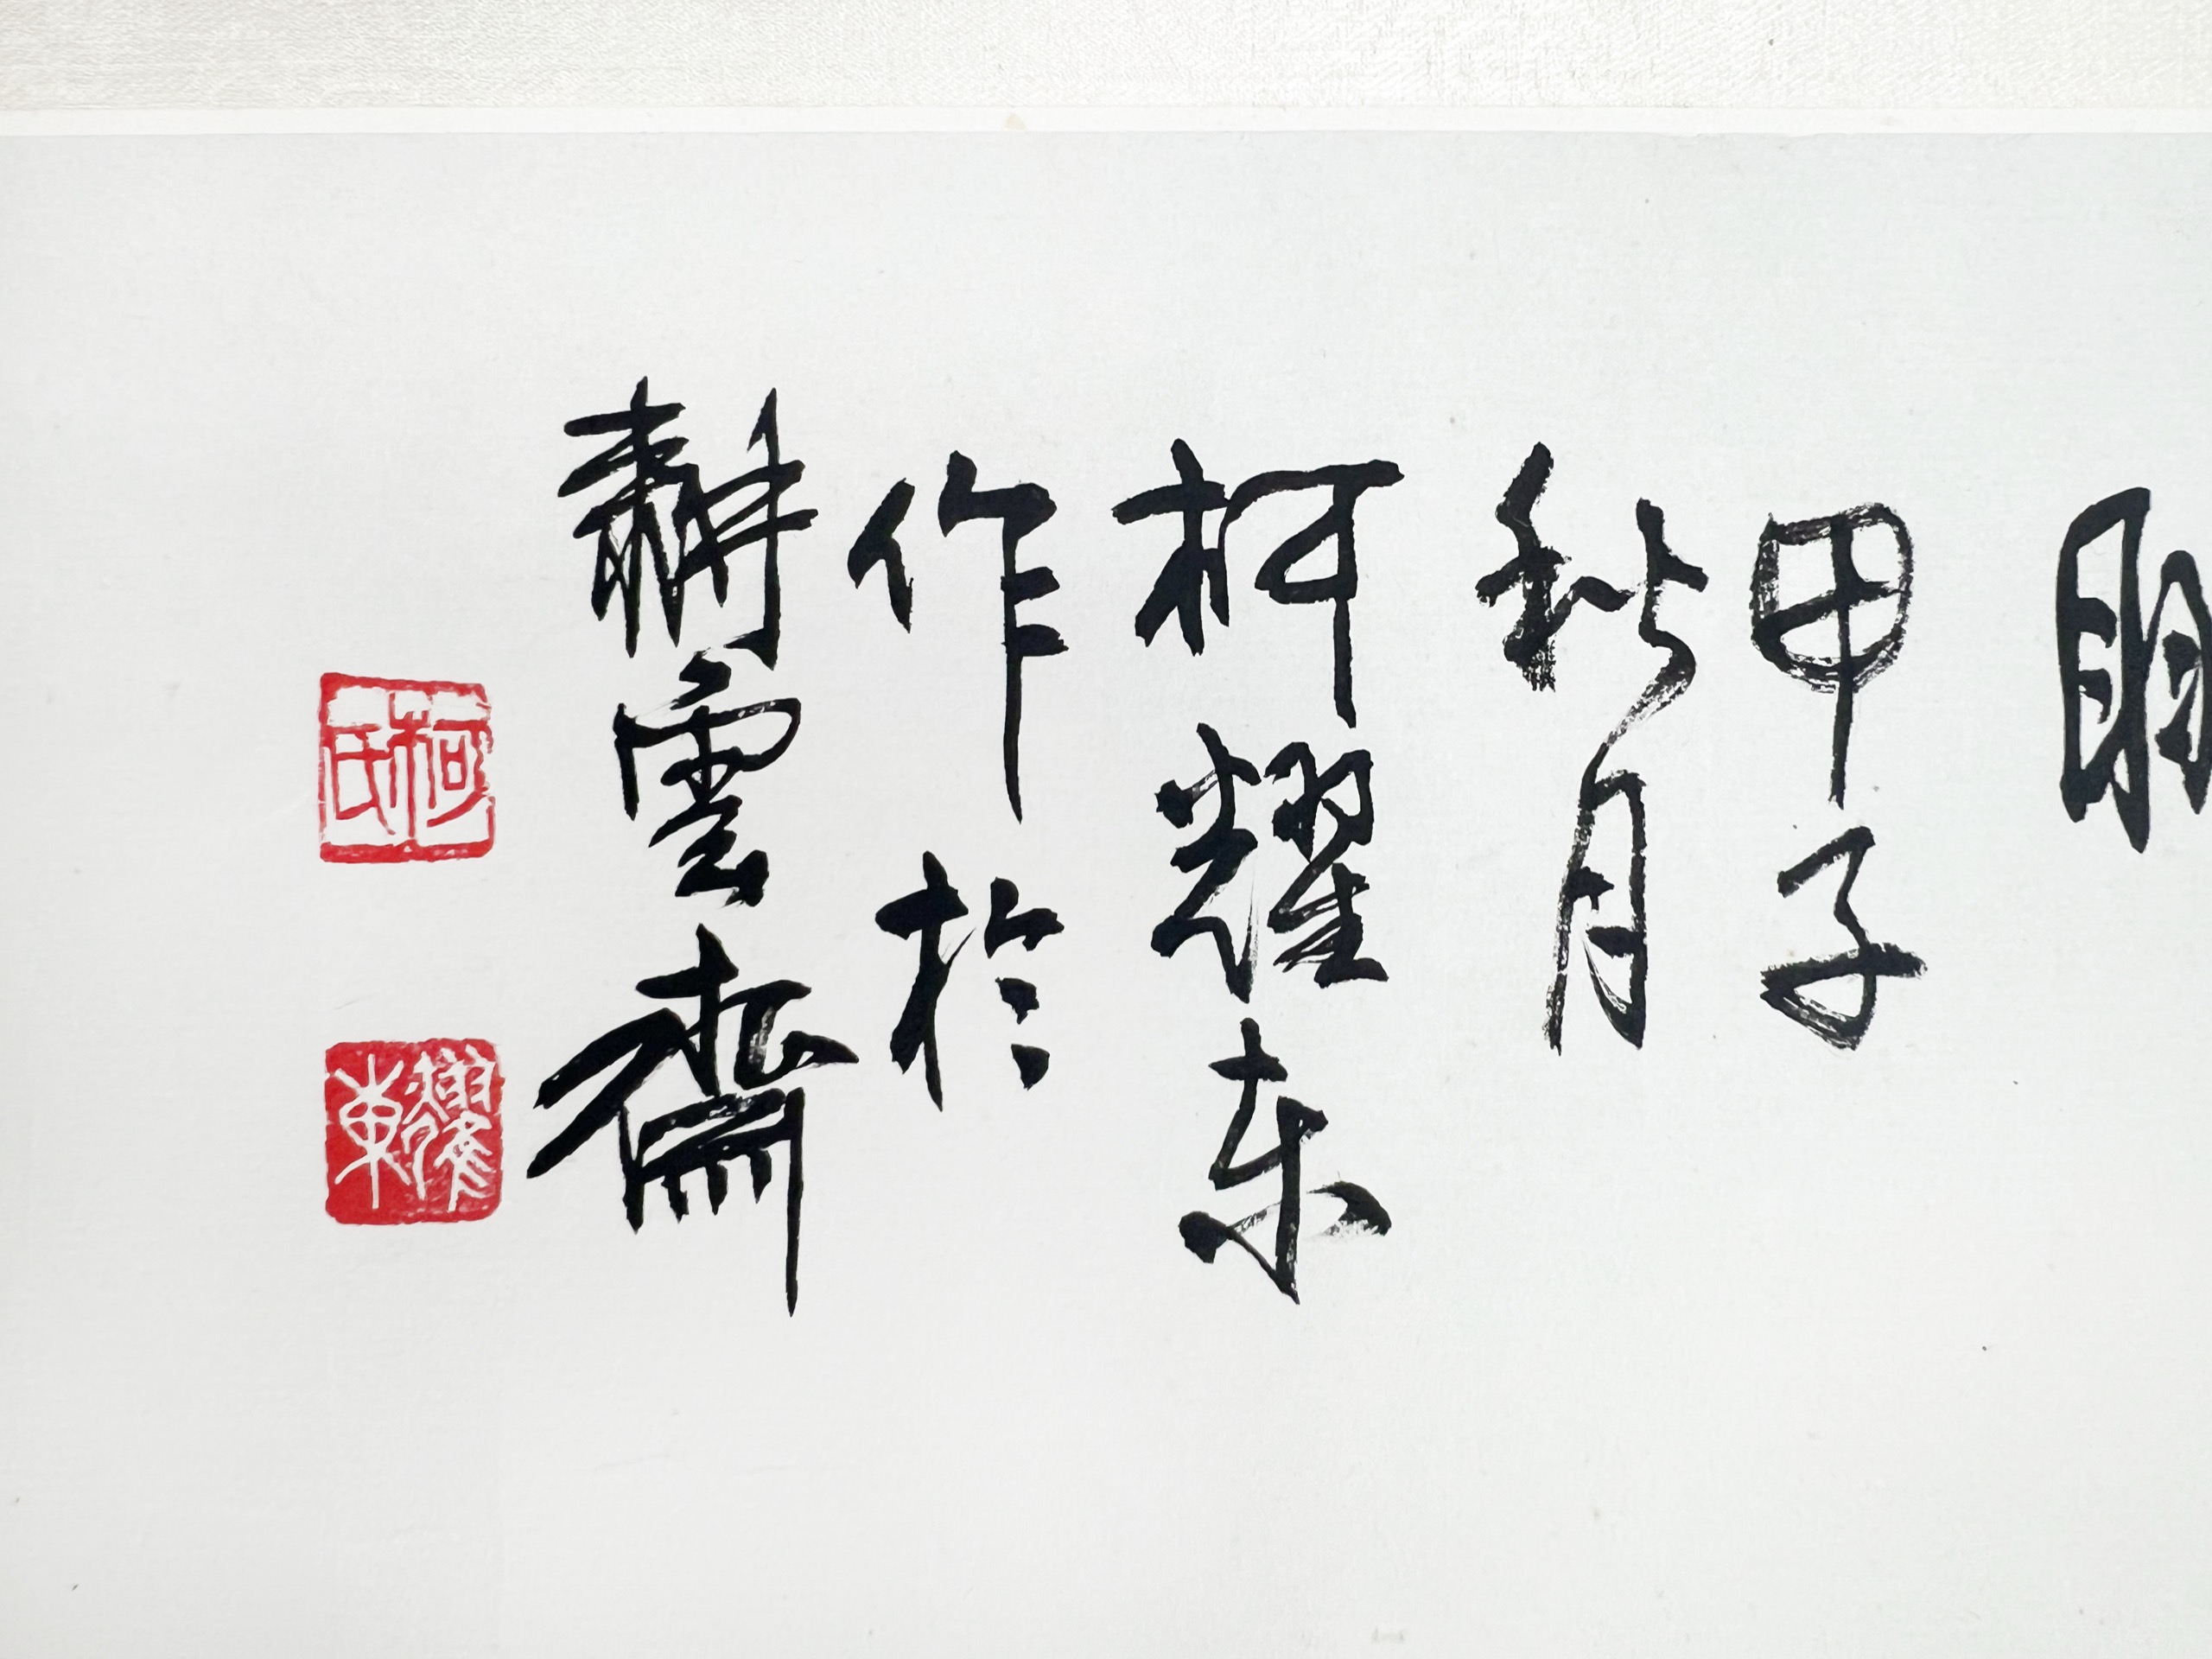 明
甲子
秋月
柯耀东
作於
靜雲齋
柯氏
耀東